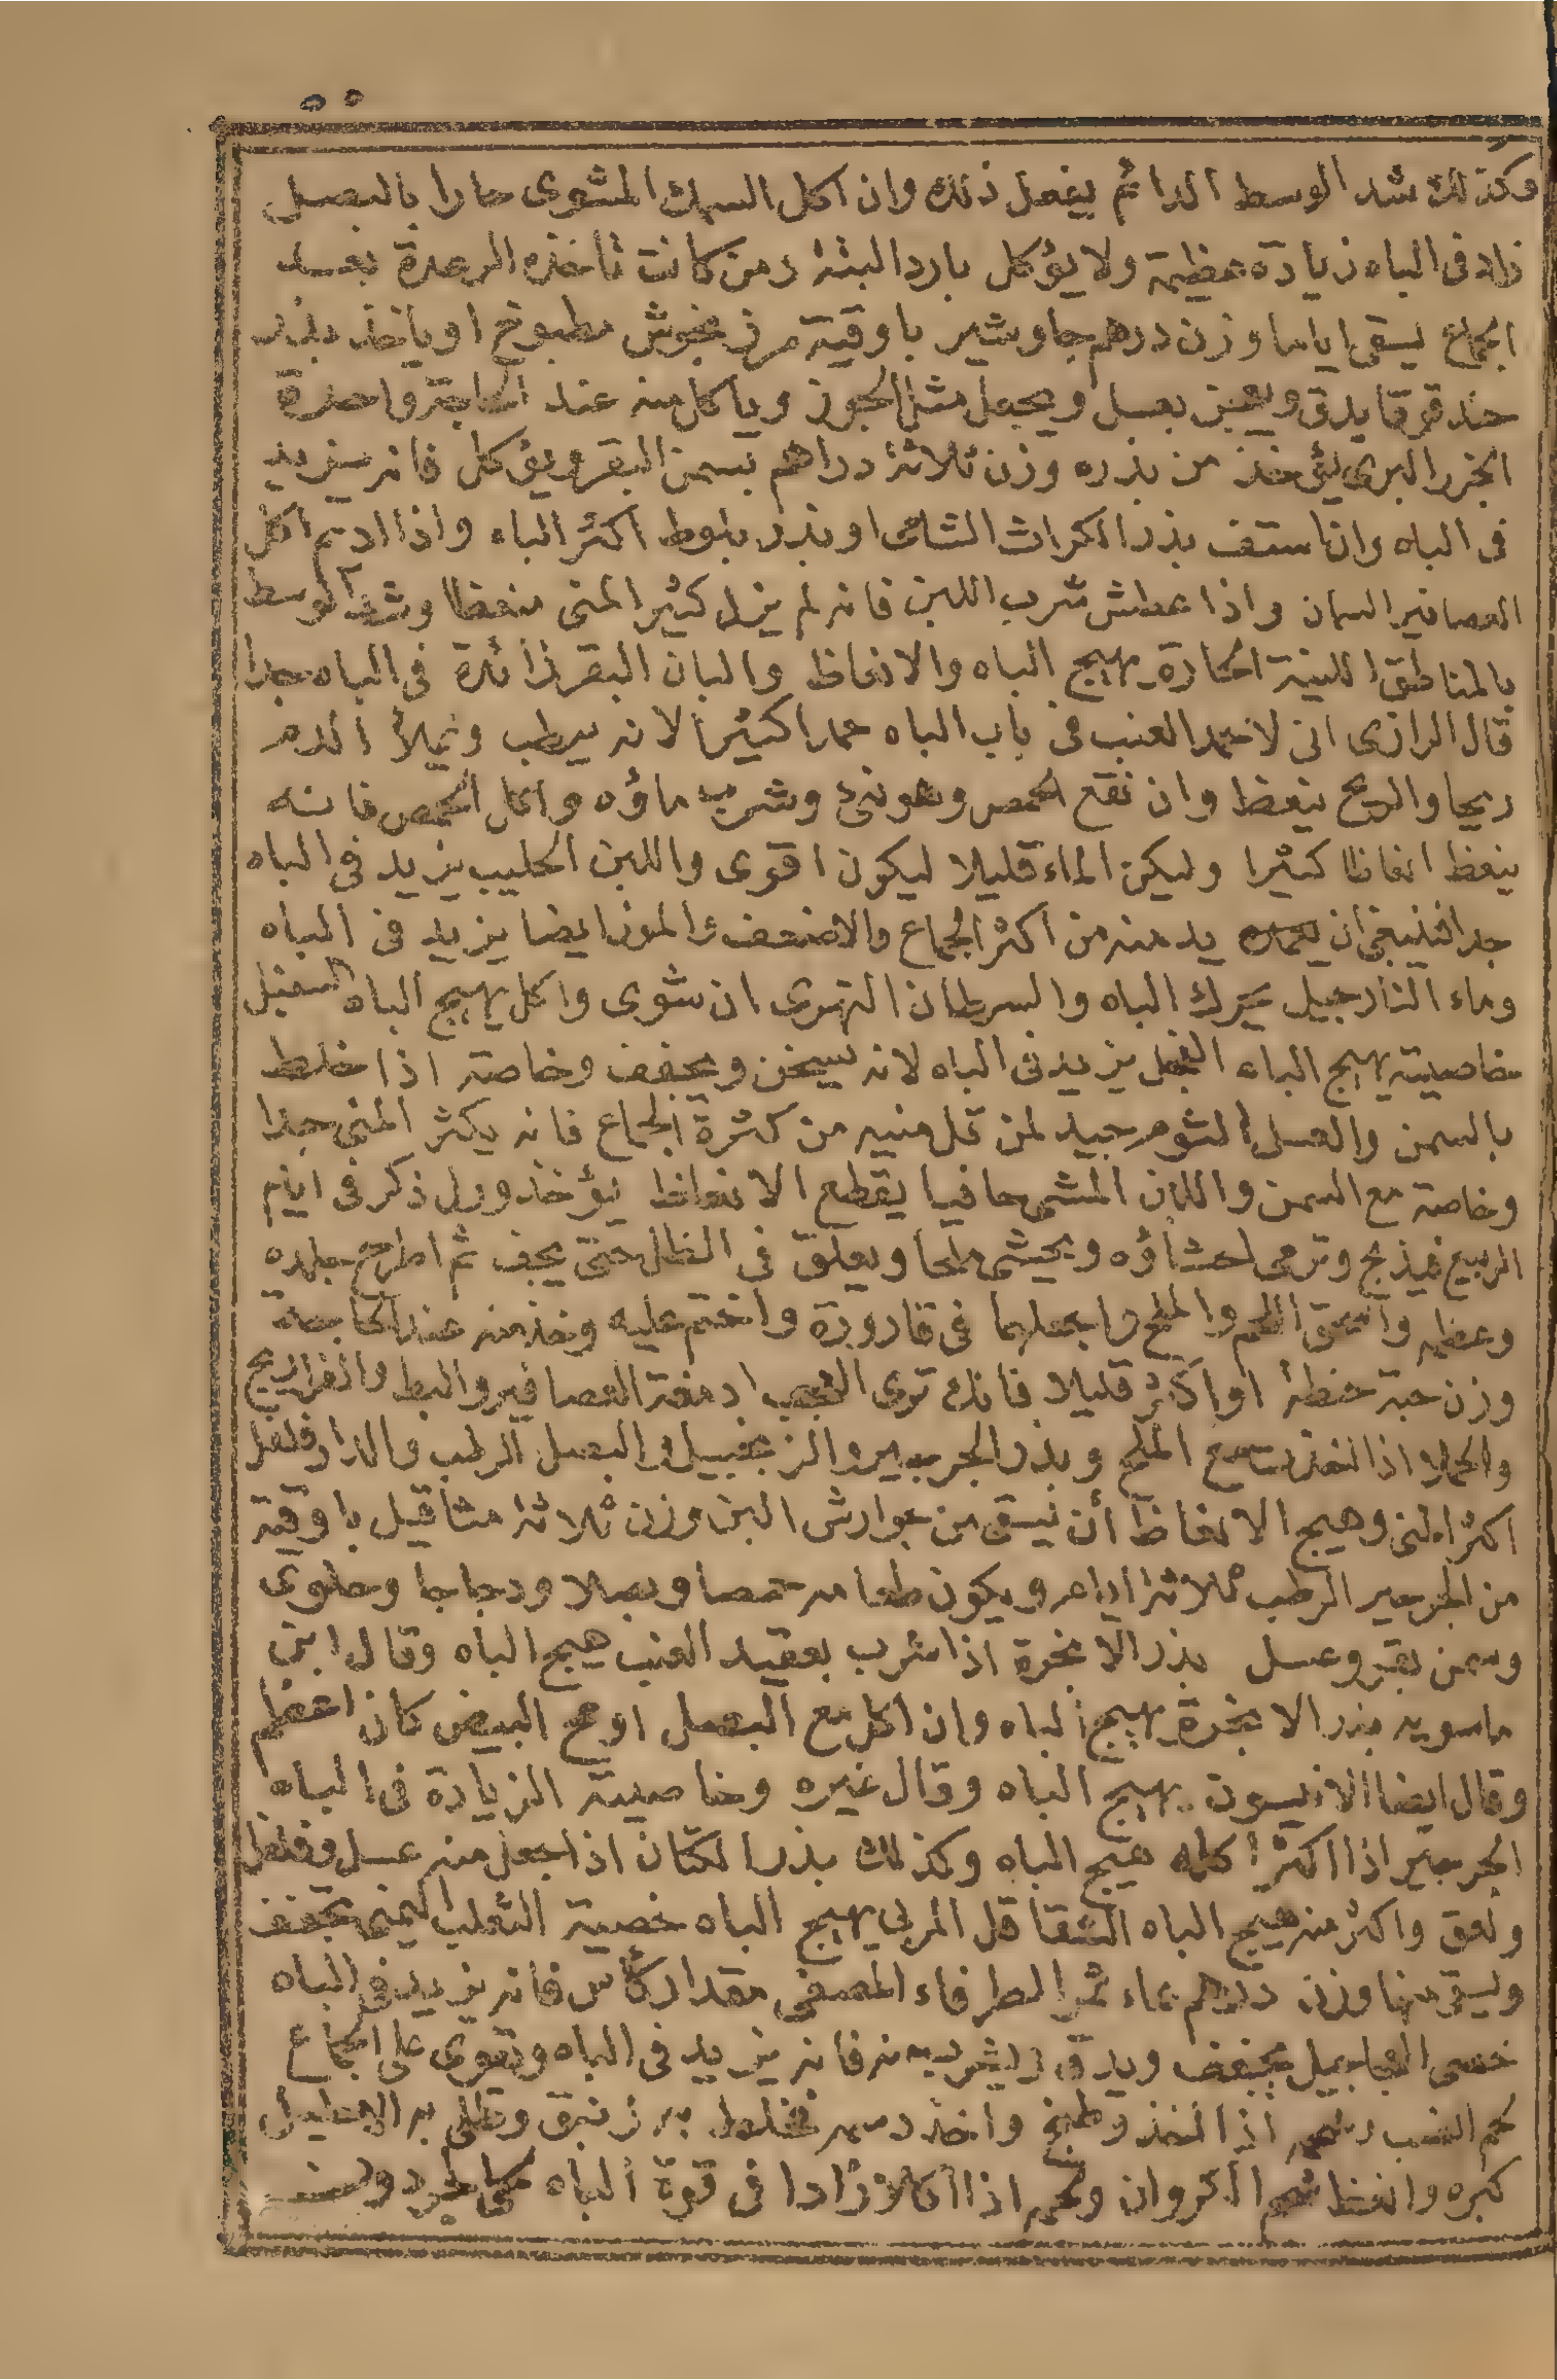 ٥٥
وكذلك شد الوسط الدائم يفعل ذلك وان اكل السمك المشوى حارا بالبصل
زاد فى الباه زيادة عظيمة ولا يؤكل باردا البتة ومن كانت تاخذه الرعدة بعد
الجماع يسقى اياما وزن درهم جاوشير باوقية مرزنجوش مطبوخ او ياخذ بذر
حندقوقا يدق ويعجن بعسل ويجعل مثل الجوز وياكل منه عند الحاجة واحدة
الجزر البرى يؤخذ من بذره وزن ثلاثة دراهم بسمن البقر ويؤكل فانه يزيد
فى الباه وان استف بذر الكراث الشامى او بذر بلوط اكثر الباه واذا اديم اكل
العصافير السمان واذا عطش شرب اللبن فانه لم يزل كثير المنى منعظا وشد الوسط
بالمناطق اللينة الحارة يهيج الباه والانعاظ والبان البقر زائدة فى الباه جدا
قال الرازى انى لاحمد العنب فى باب الباه حمدا كثيرا لانه يرطب ويملأ الدم
ريحا والريح ينعظ وان نقع الحمص وهو نىء وشرب ماؤه واكل الحمص فانه
ينعظ انعاظا كثيرا وليكن الماء قليلا ليكون اقوى واللبن الحليب يزيد فى الباه
جدا فينبغى ان يدمنه من اكثر الجماع والاضعف والموز ايضا يزيد فى الباه
وماء النارجيل يحرك الباه والسرطان النهرى ان شوى واكل يهيج الباه السقنقل
خاصيته يهيج الباه الفجل يزيد فى الباه لانه يسخن ويجفف وخاصة اذا خلط
بالسمن والعسل الثوم جيد لمن قل منيه من كثرة الجماع فانه يكثر المنى جدا
وخاصة مع السمن واللبن المشى حافيا يقطع الانعاظ يؤخذ ورل ذكر فى ايام
الربيع فيذبح وترمى احشاؤه ويحشى ملحا ويعلق فى الظل حتى يجف ثم اطرح جلده
وعظمه واسحق اللحم والملح واجعلهما فى قارورة واختم عليه وخذ منه عند الحاجة
وزن حبة حنطة او اكثر قليلا فانك ترى العجب ادمغة العصافير والبط والفراريج
والحملا اذا اخذت مع الملح وبذر الجرجير والزنجبيل والبصل الرطب والدارفلفل
اكثر المنى وهيج الانعاظ أن يسقى من جوارش البزور وزن ثلاثة مثاقيل باوقية
من الجرجير الرطب ثلاثة ايام ويكون طعامه حمصا وبصلا ودجاجا وحلوى
وسمن بقر وعسل بذر الانجرة اذا شرب بعقيد العنب هيج الباه وقال ابن
ماسويه بذر الانجرة يهيج الباه وان اكل مع البصل او مح البيض كان اعظم
وقال ايضا الانيسون يهيج الباه وقال غيره وخاصيته الزيادة فى الباه
الجرجير اذا اكثر اكله هيج الباه وكذلك بذر الكتان اذا جعل منه عسل وفلفل
ولعق واكثر منه هيج الباه الشقاقل المربى يهيج الباه خصية الثعلب اليمنى تجفف
ويسقى منها وزن درهم بماء ثمر الطرفاء المصفى مقدار كأس فانه يزيد فى الباه
خصى العجاجيل يجفف ويدق ويشرب منه فانه يزيد فى الباه ويقوى على الجماع
لحم الضب اذا اخذ وطبخ واخذ دسمه فخلط به زنبق وطلى به الاحليل
كبره وانعظ شحم الكروان ولحمه اذا اكلا زادا فى قوة الباه